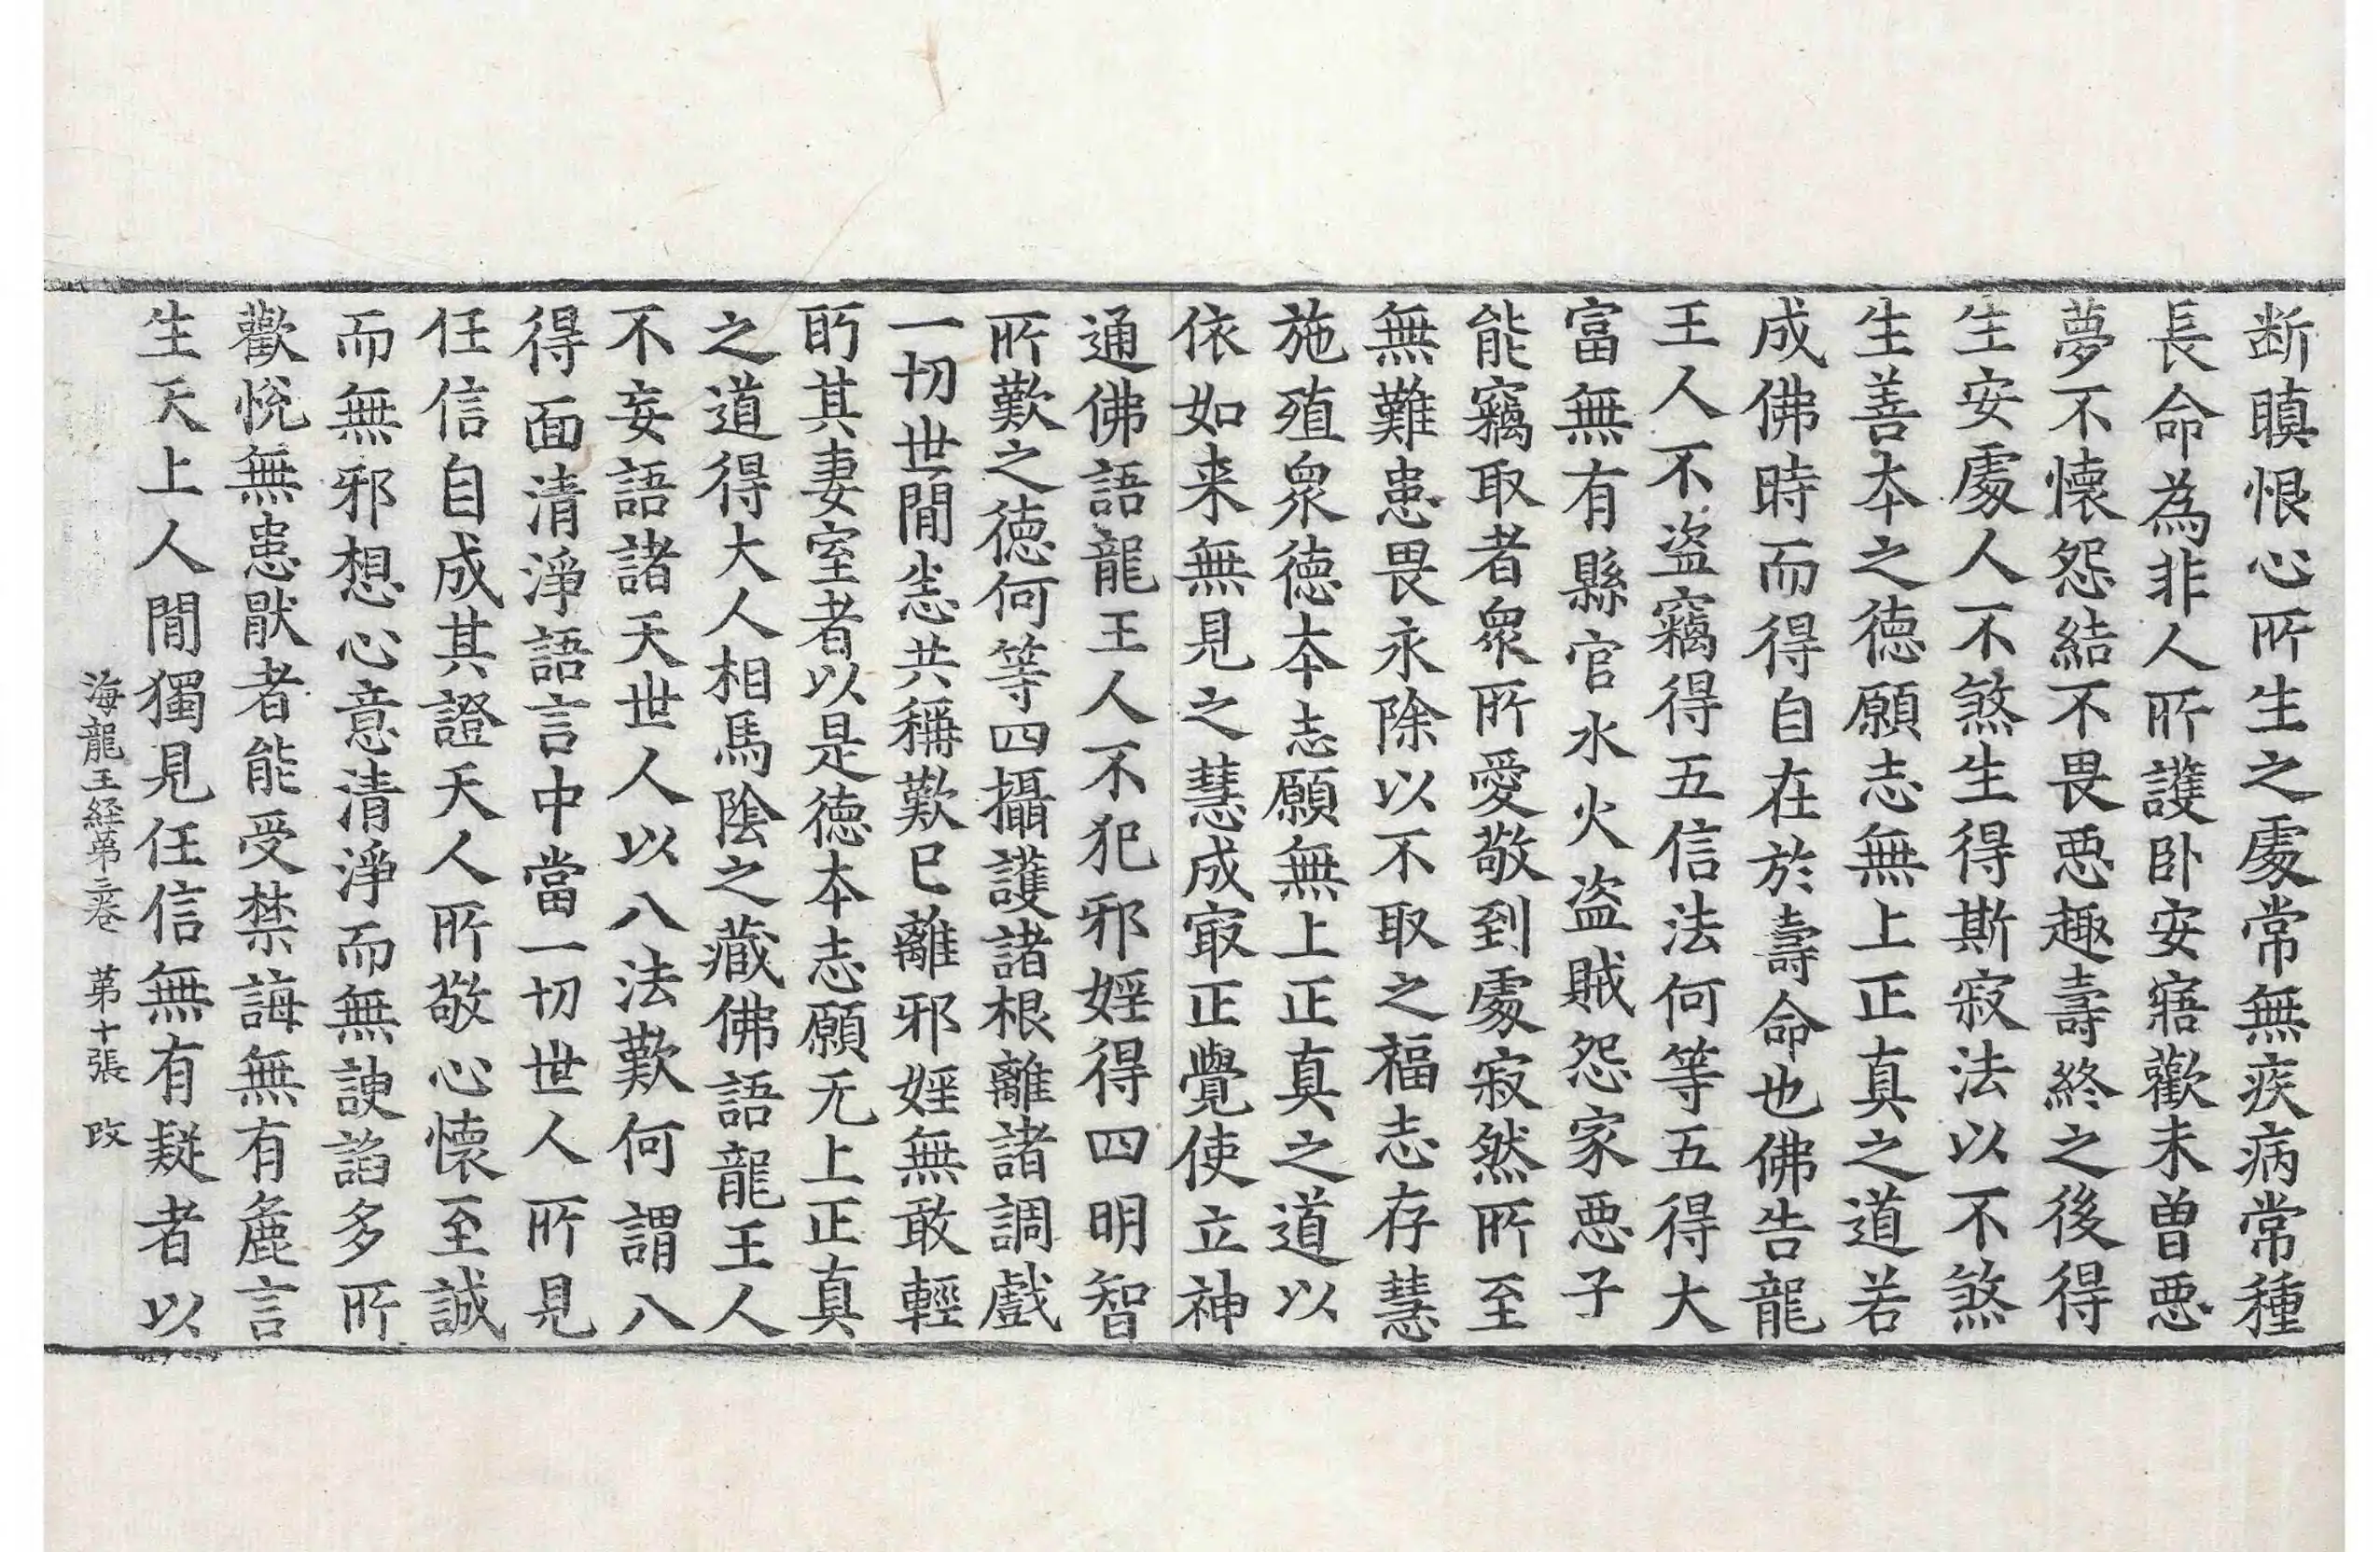 断瞋恨心所生之處常無疾病常種
長命為非人所護卧安寤歡未曾惡
夢不懷怨結不畏惡趣壽終之後得
生安處人不煞生得斯寂法以不煞
生善本之德願志無上正真之道若
成佛時而得自在於壽命也佛告龍
王人不盗竊得五信法何等五得大
富無有縣官水火盗賊怨家惡子
能竊取者衆所愛敬到處寂然所至
無難患畏永除以不取之福志存慧
施殖衆德本志願無上正真之道以
依如来無見之慧成㝡正覺使立神
通佛語龍王人不犯邪婬得四明智
所歎之德何等四攝護諸根離諸調戲
一切世間悉共稱歎已離邪婬無敢輕
眄其妻室者以是德本志願无上正真
之道得大人相馬陰之藏佛語龍王人
不妄語諸天世人以八法歎何謂八
得面清淨語言中當一切世人所見
任信自成其證天人所敬心懷至誠
而無邪想心意清淨而無諛諂多所
歡悅無患猒者能受禁誨無有麁言
生天上人間獨見任信無有疑者以
海龍王經第三卷 第十張 改